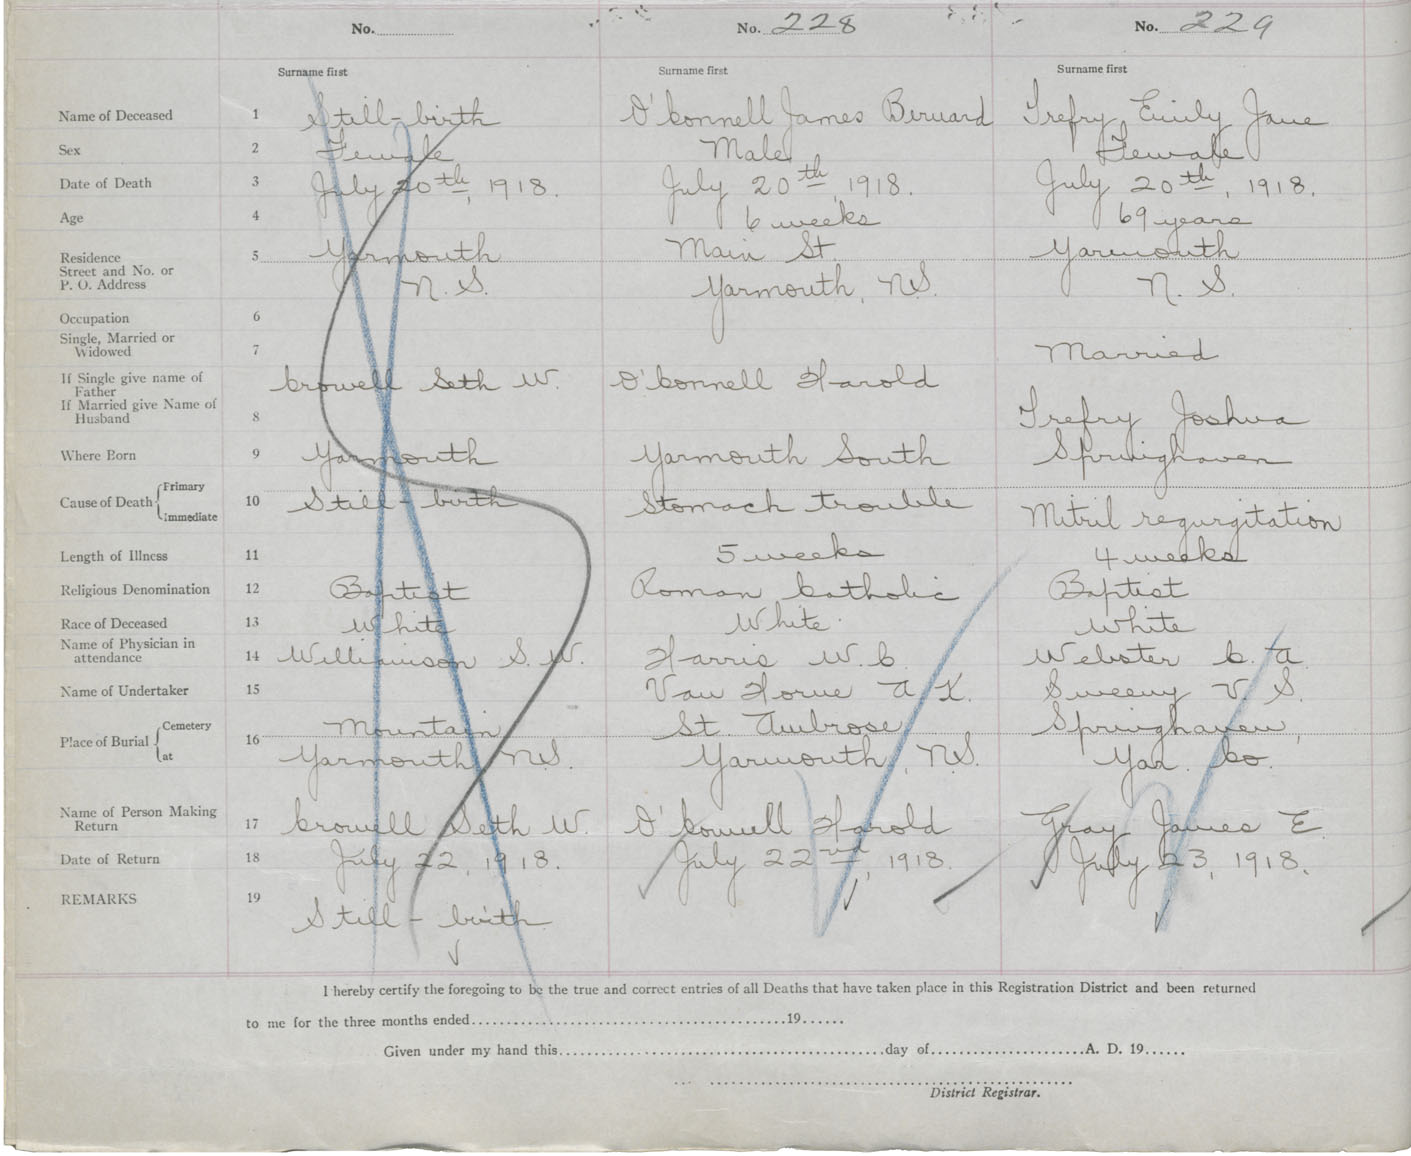 No. ............
No. 228
No. 229
Surname first
Surname first
Surname first
Name of Deceased 1 Still-birth O'Connell James Bernard Trefry Emily Jane
Sex 2 Female Male Female
Date of Death 3 July 20th, 1918. July 20th, 1918. July 20th, 1918.
Age 4 6 weeks 69 years
Residence 5 Yarmouth Main St. Yarmouth
Street and No. or
P. O. Address N.S. Yarmouth, N.S. N. S.
Occupation 6
Single, Married or
Widowed 7 Married
If Single give name of
Father Crowell Seth W. O'Connell Harold
If Married give Name of
Husband 8 Trefry Joshua
Where Born 9 Yarmouth Yarmouth South Springhaven
Cause of Death { Primary
10 Still-birth Stomach trouble Mitril regurgitation
Immediate
Length of Illness 11 5 weeks 4 weeks
Religious Denomination 12 Baptist Roman Catholic Baptist
Race of Deceased 13 White White White
Name of Physician in
attendance 14 Williamson S. W. Harris W. C. Webster C. A.
Name of Undertaker 15 Van Horne A. K. Sweeny V. S.
Place of Burial { Cemetery 16 Mountain St. Ambrose Springhaven,
at Yarmouth N.S. Yarmouth, N.S. Yar. Co.
Name of Person Making
Return 17 Crowell Seth W. O'Connell Harold Gray James E.
Date of Return 18 July 22, 1918. July 22nd, 1918. July 23, 1918.
REMARKS 19 Still-birth
I hereby certify the foregoing to be the true and correct entries of all Deaths that have taken place in this Registration District and been returned
to me for the three months ended............................................19......
Given under my hand this............................................day of......................A. D. 19......
District Registrar.